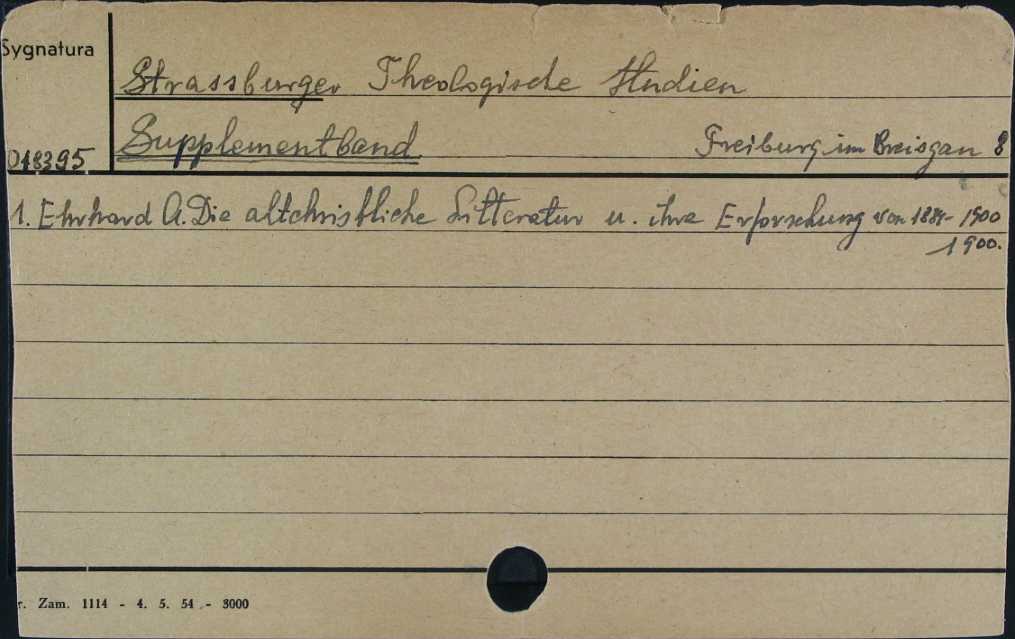 Sygnatura
Strassburger Theologische Studien
Supplementband Freiburg im Breisgau 8
018395
1. Ehrhard A. Die altchristliche Litteratur u. ihre Erforschung von 1884-1900
1900.
r. Zam. 1114 - 4. 5. 54 - 3000